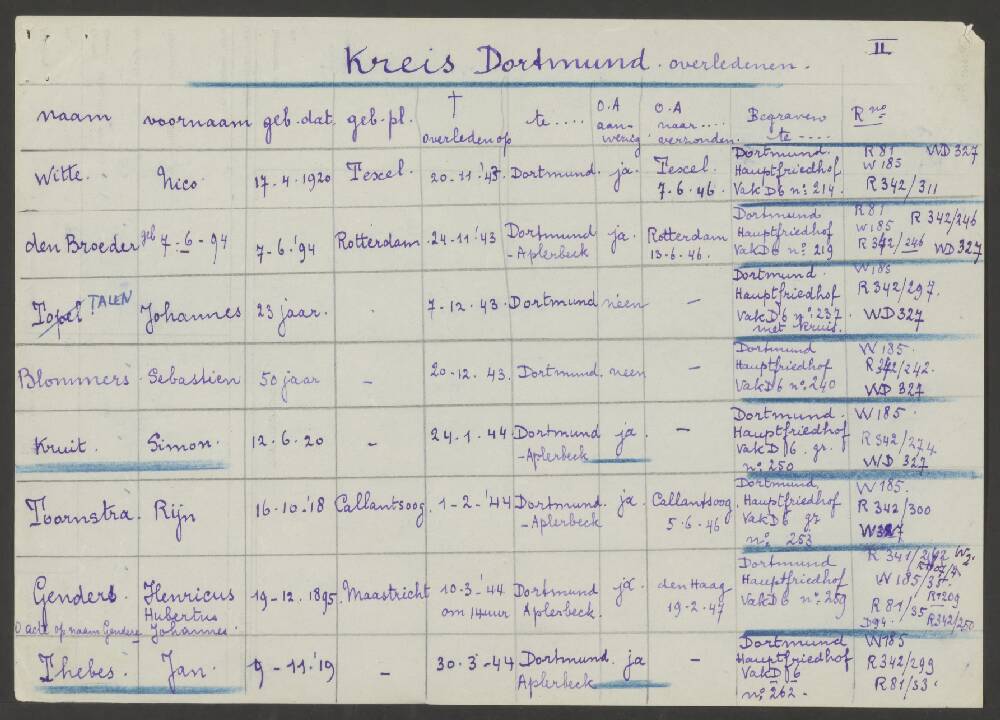 II
Kreis Dortmund. overledenen.
naam voornaam geb. dat. geb. pl. † overleden op te .... O.A aanwezig O.A naar .... verzonden. Begraven te .... R no
Witte. Nico. 17.4.1920 Texel. 20-11.'43 Dortmund. ja. Texel. 7-6.'46. Dortmund. Hauptfriedhof Vak D6 no: 214. R81 WD 327 W185 R342/311
den Broeder geb 7-6-94 7-6.'94 Rotterdam. 24-11.'43 Dortmund -Aplerbeck ja. Rotterdam 13-6.46. Dortmund Hauptfriedhof Vak D6 no. 219 R81 W185 R342/246 R342/246 WD 327
Topel TALEN Johannes 23 jaar. 7-12.43. Dortmund neen - Dortmund. Hauptfriedhof Vak D6 no: 237. met kruis. W185 R342/297. WD 327
Blommers Sebastien 50 jaar - 20-12.43. Dortmund. neen - Dortmund Hauptfriedhof Vak D6 no: 240 W185. R342/242. WD 327
Kruit. Simon. 12.6.20 - 24.1.44 Dortmund -Aplerbeck ja. - Dortmund. Hauptfriedhof Vak D 6. gr. no: 250 W185. R342/274 WD 327
Toornstra. Rijn 16.10.'18 Callantsoog. 1-2.'44 Dortmund. -Aplerbeck ja. Callantsoog. 5.6.46 Dortmund. Hauptfriedhof Vak D6 gr no: 253 W185. R342/300
Genders. Henricus Hubertus Johannes. 19-12.1895. Maastricht 10-3-'44 om 14 uur Dortmund Aplerbeck. ja. den Haag 19-2.'47 Dortmund Hauptfriedhof Vak D6 no: 259 W185/35. R81/35 R209 D94. R342/250
O acte op naam Gendere
Thebes. Jan. 9-11.'19 - 30.3-44 Dortmund. Aplerbeck. ja - Dortmund Hauptfriedhof Vak D 6 no: 262- W185 R342/299 R81/33.